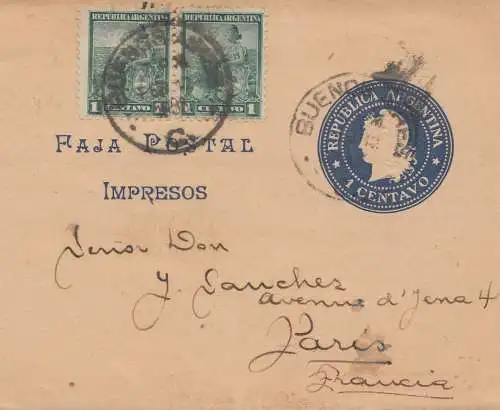 REPUBLICA ARGENTINA REPUBLICA ARGENTINA
1 CENTAVO 1 CENTAVO 1
BUENO
FAJA POSTAL
IMPRESOS
REPUBLICA ARGENTINA
1 CENTAVO
BUENO
Señor Don
J. Sanchez
avenue d'Jena 4
Paris
Francia